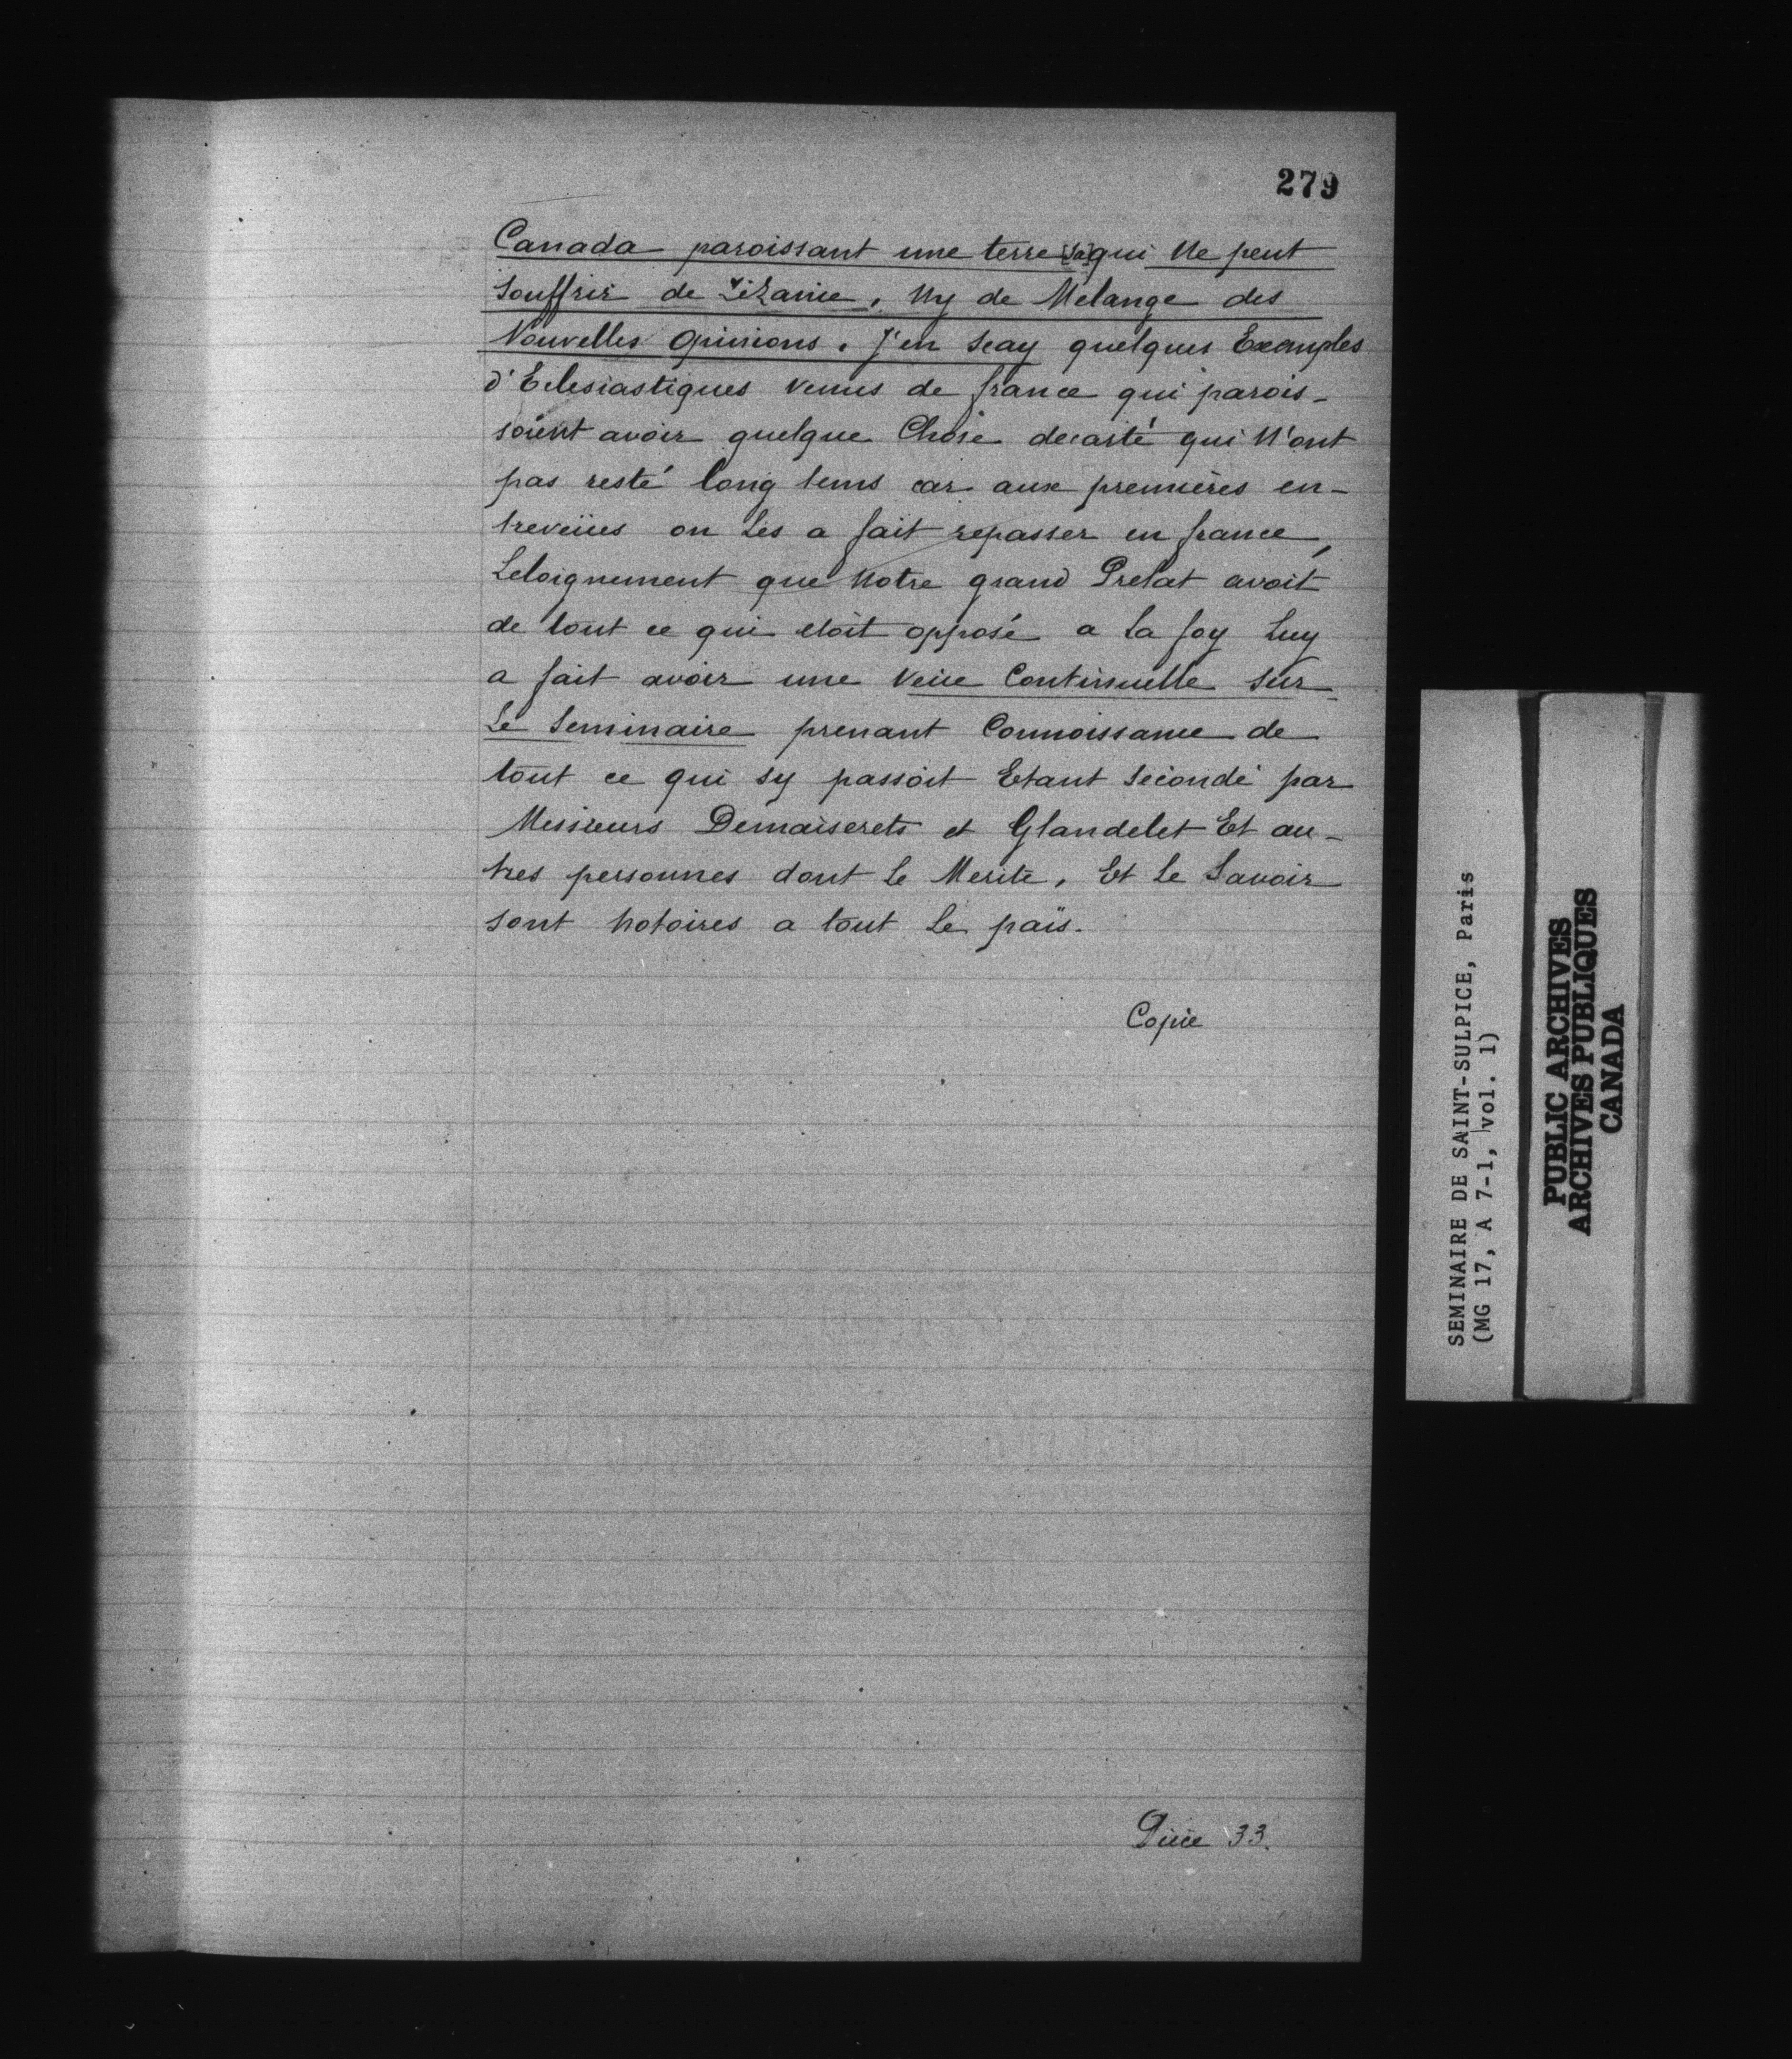 279
Canada paroissant une terre qui Ne peut
Souffrir de Zizanie, Ny de Melange des
Nouvelles Opinions. J'en scay quelques Exemples
d'Eclesiastiques venus de france qui parois-
soient avoir quelque Chose decarté qui N'ont
pas resté long tems car aux premières en-
treveües on Les a fait repasser en france,
Leloignement que Notre grand Prelat avoit
de tout ce qui etoit opposé a La foy Luy
a fait avoir une veüe Continuelle sur
Le Seminaire prenant Connoissance de
tout ce qui sy passoit Etant Secondé par
Messieurs Demaiserets et Glandelet Et au-
tres personnes dont Le Merite, Et Le Savoir
sont notoires a tout Le païs.
Copie
Pièce 33.
SEMINAIRE DE SAINT-SULPICE, Paris
(MG 17, A 7-1, vol. 1)
PUBLIC ARCHIVES
ARCHIVES PUBLIQUES
CANADA